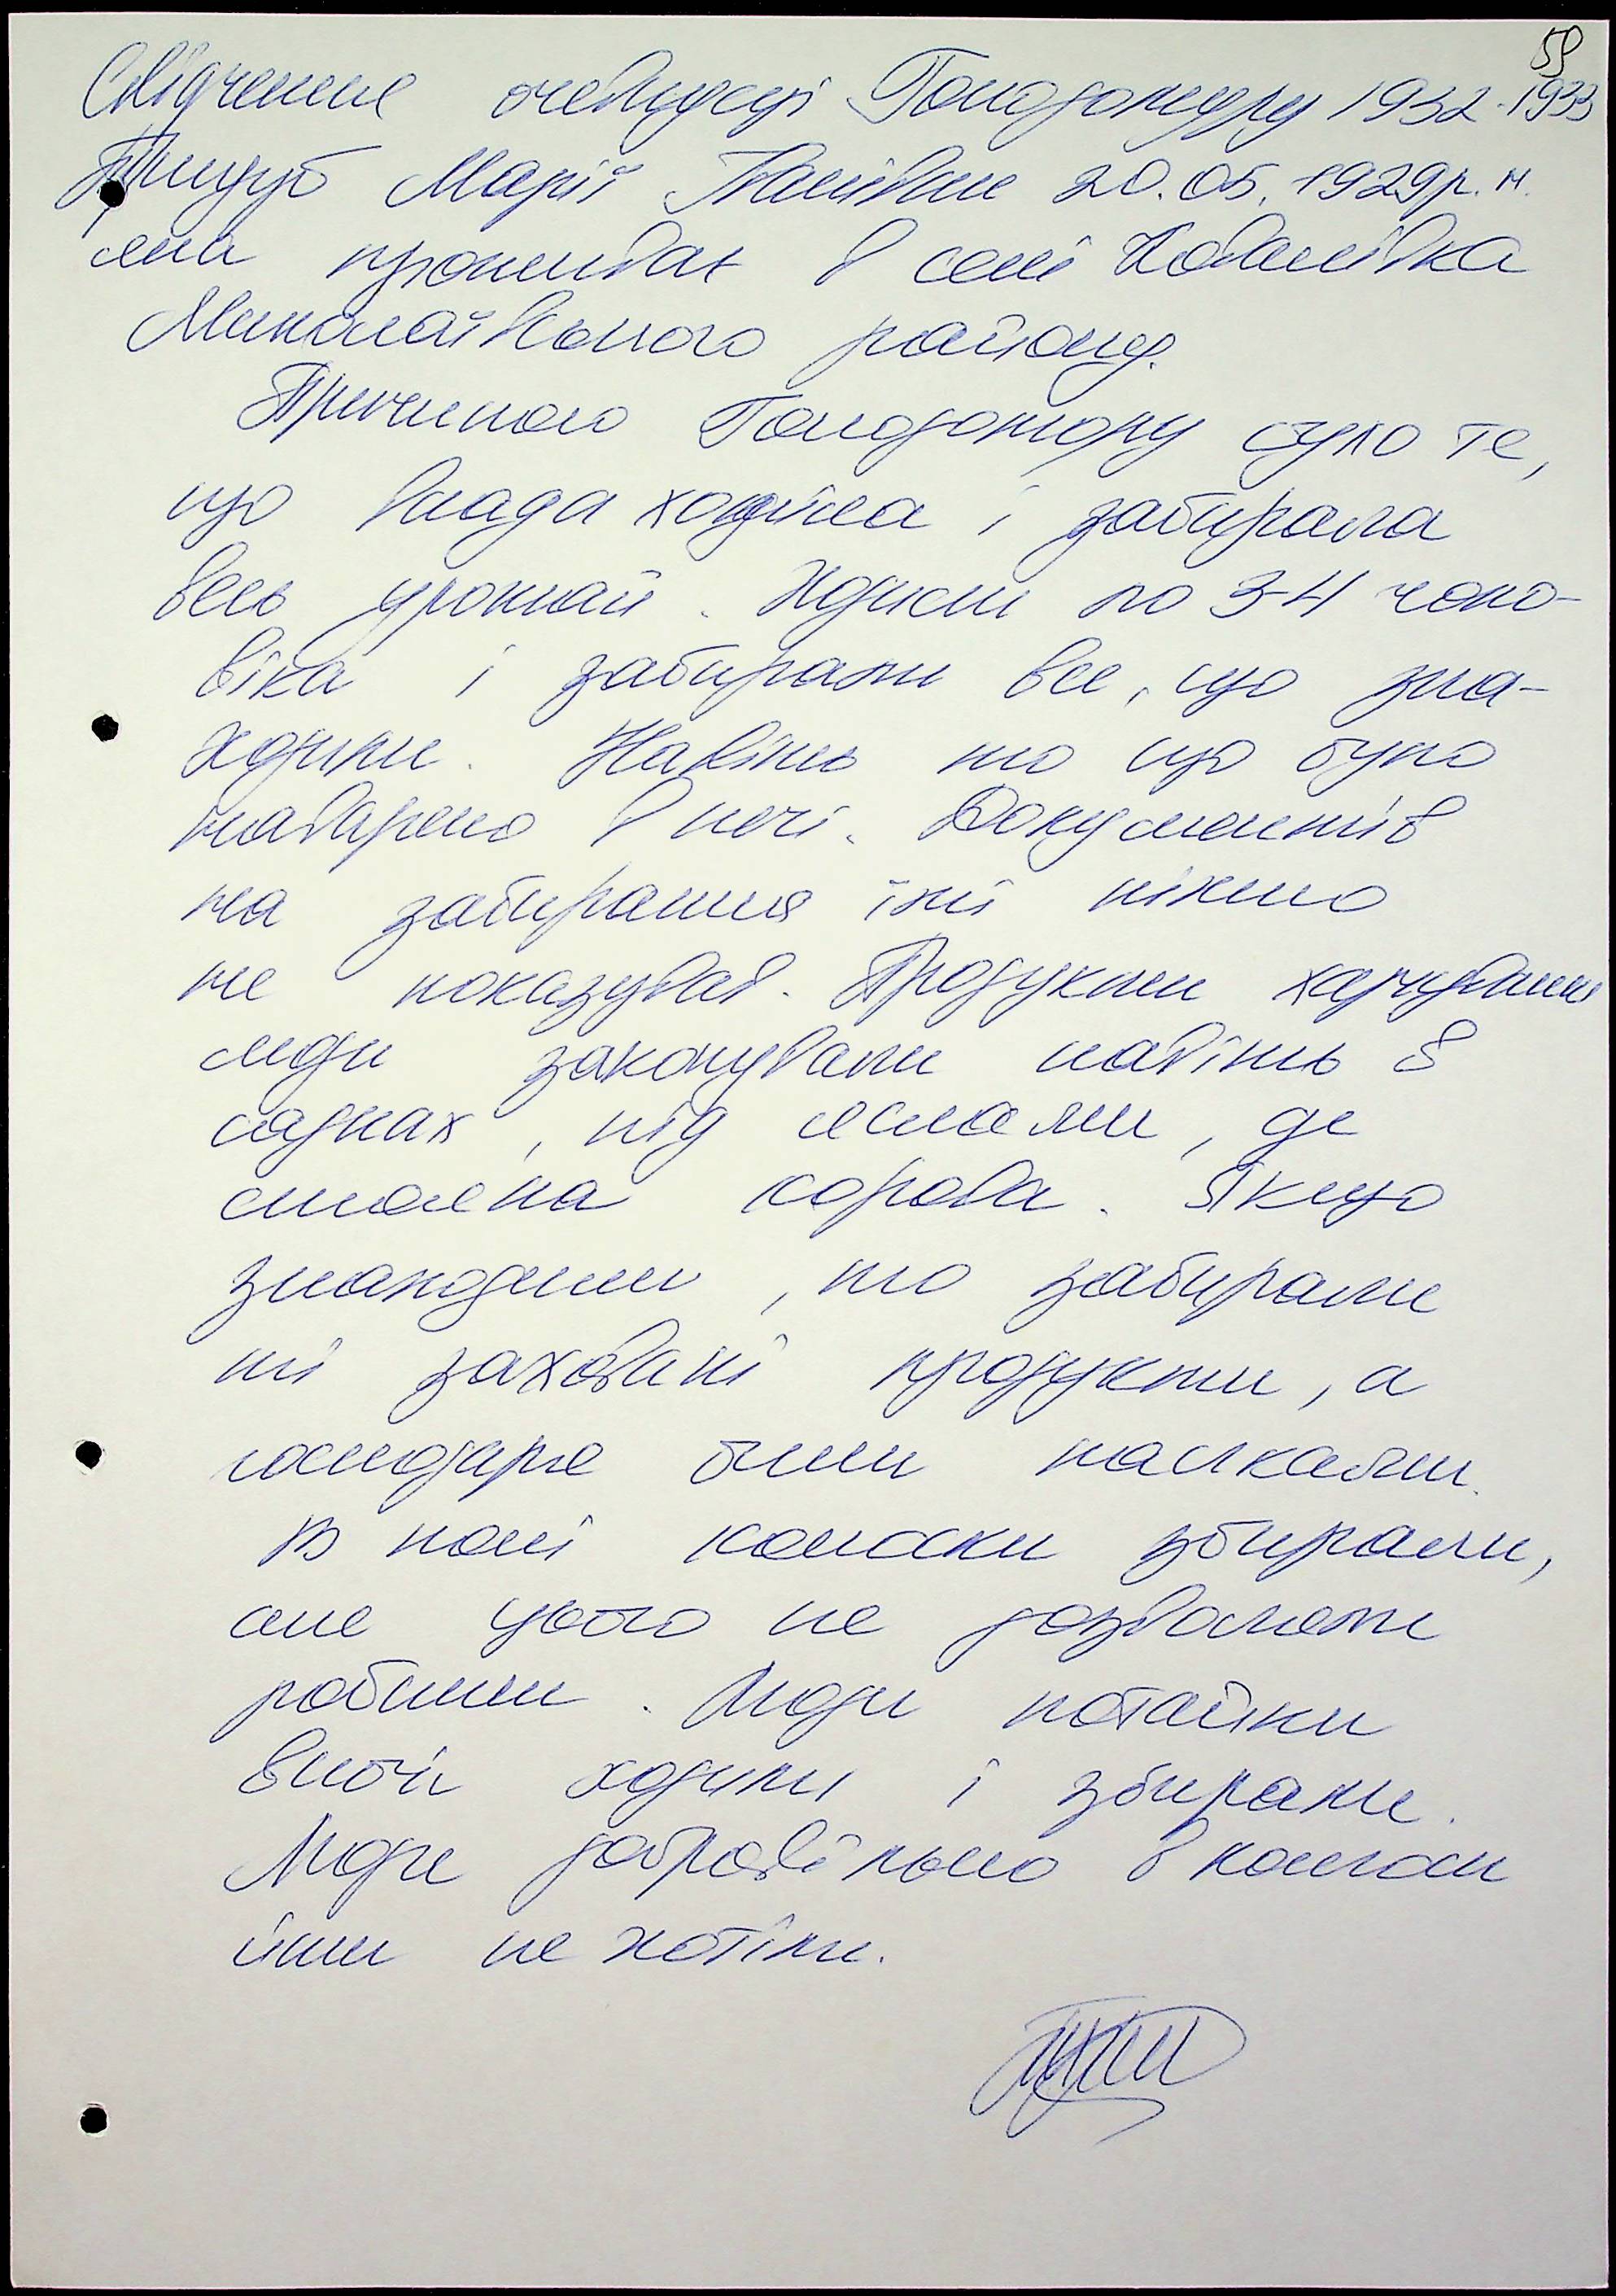 59
Свідчення очевидця Голодомору 1932-1933
Марії Іванівни 20.05.1929р.н.
яка проживає в селі Ковалівка
Миколаївського району.
Причиною Голодомору було те,
що влада ходила і забирала
весь урожай. Ходили по 3-4 чоло-
віка і забирали все, що зна-
ходили. Навіть то що було
наварено в печі. Документів
на забирання їжі ніхто
не показував. Продукти харчування
люди закопували навіть в
садках, під яслами, де
стояла корова. Якщо
знаходили, то забирали
ті заховані продукти, а
господаря били палками.
В полі колоски збирали,
але цього не дозволяли
робити. Люди потайки
вночі ходили і збирали.
Люди добровільно в колгосп
іти не хотіли.